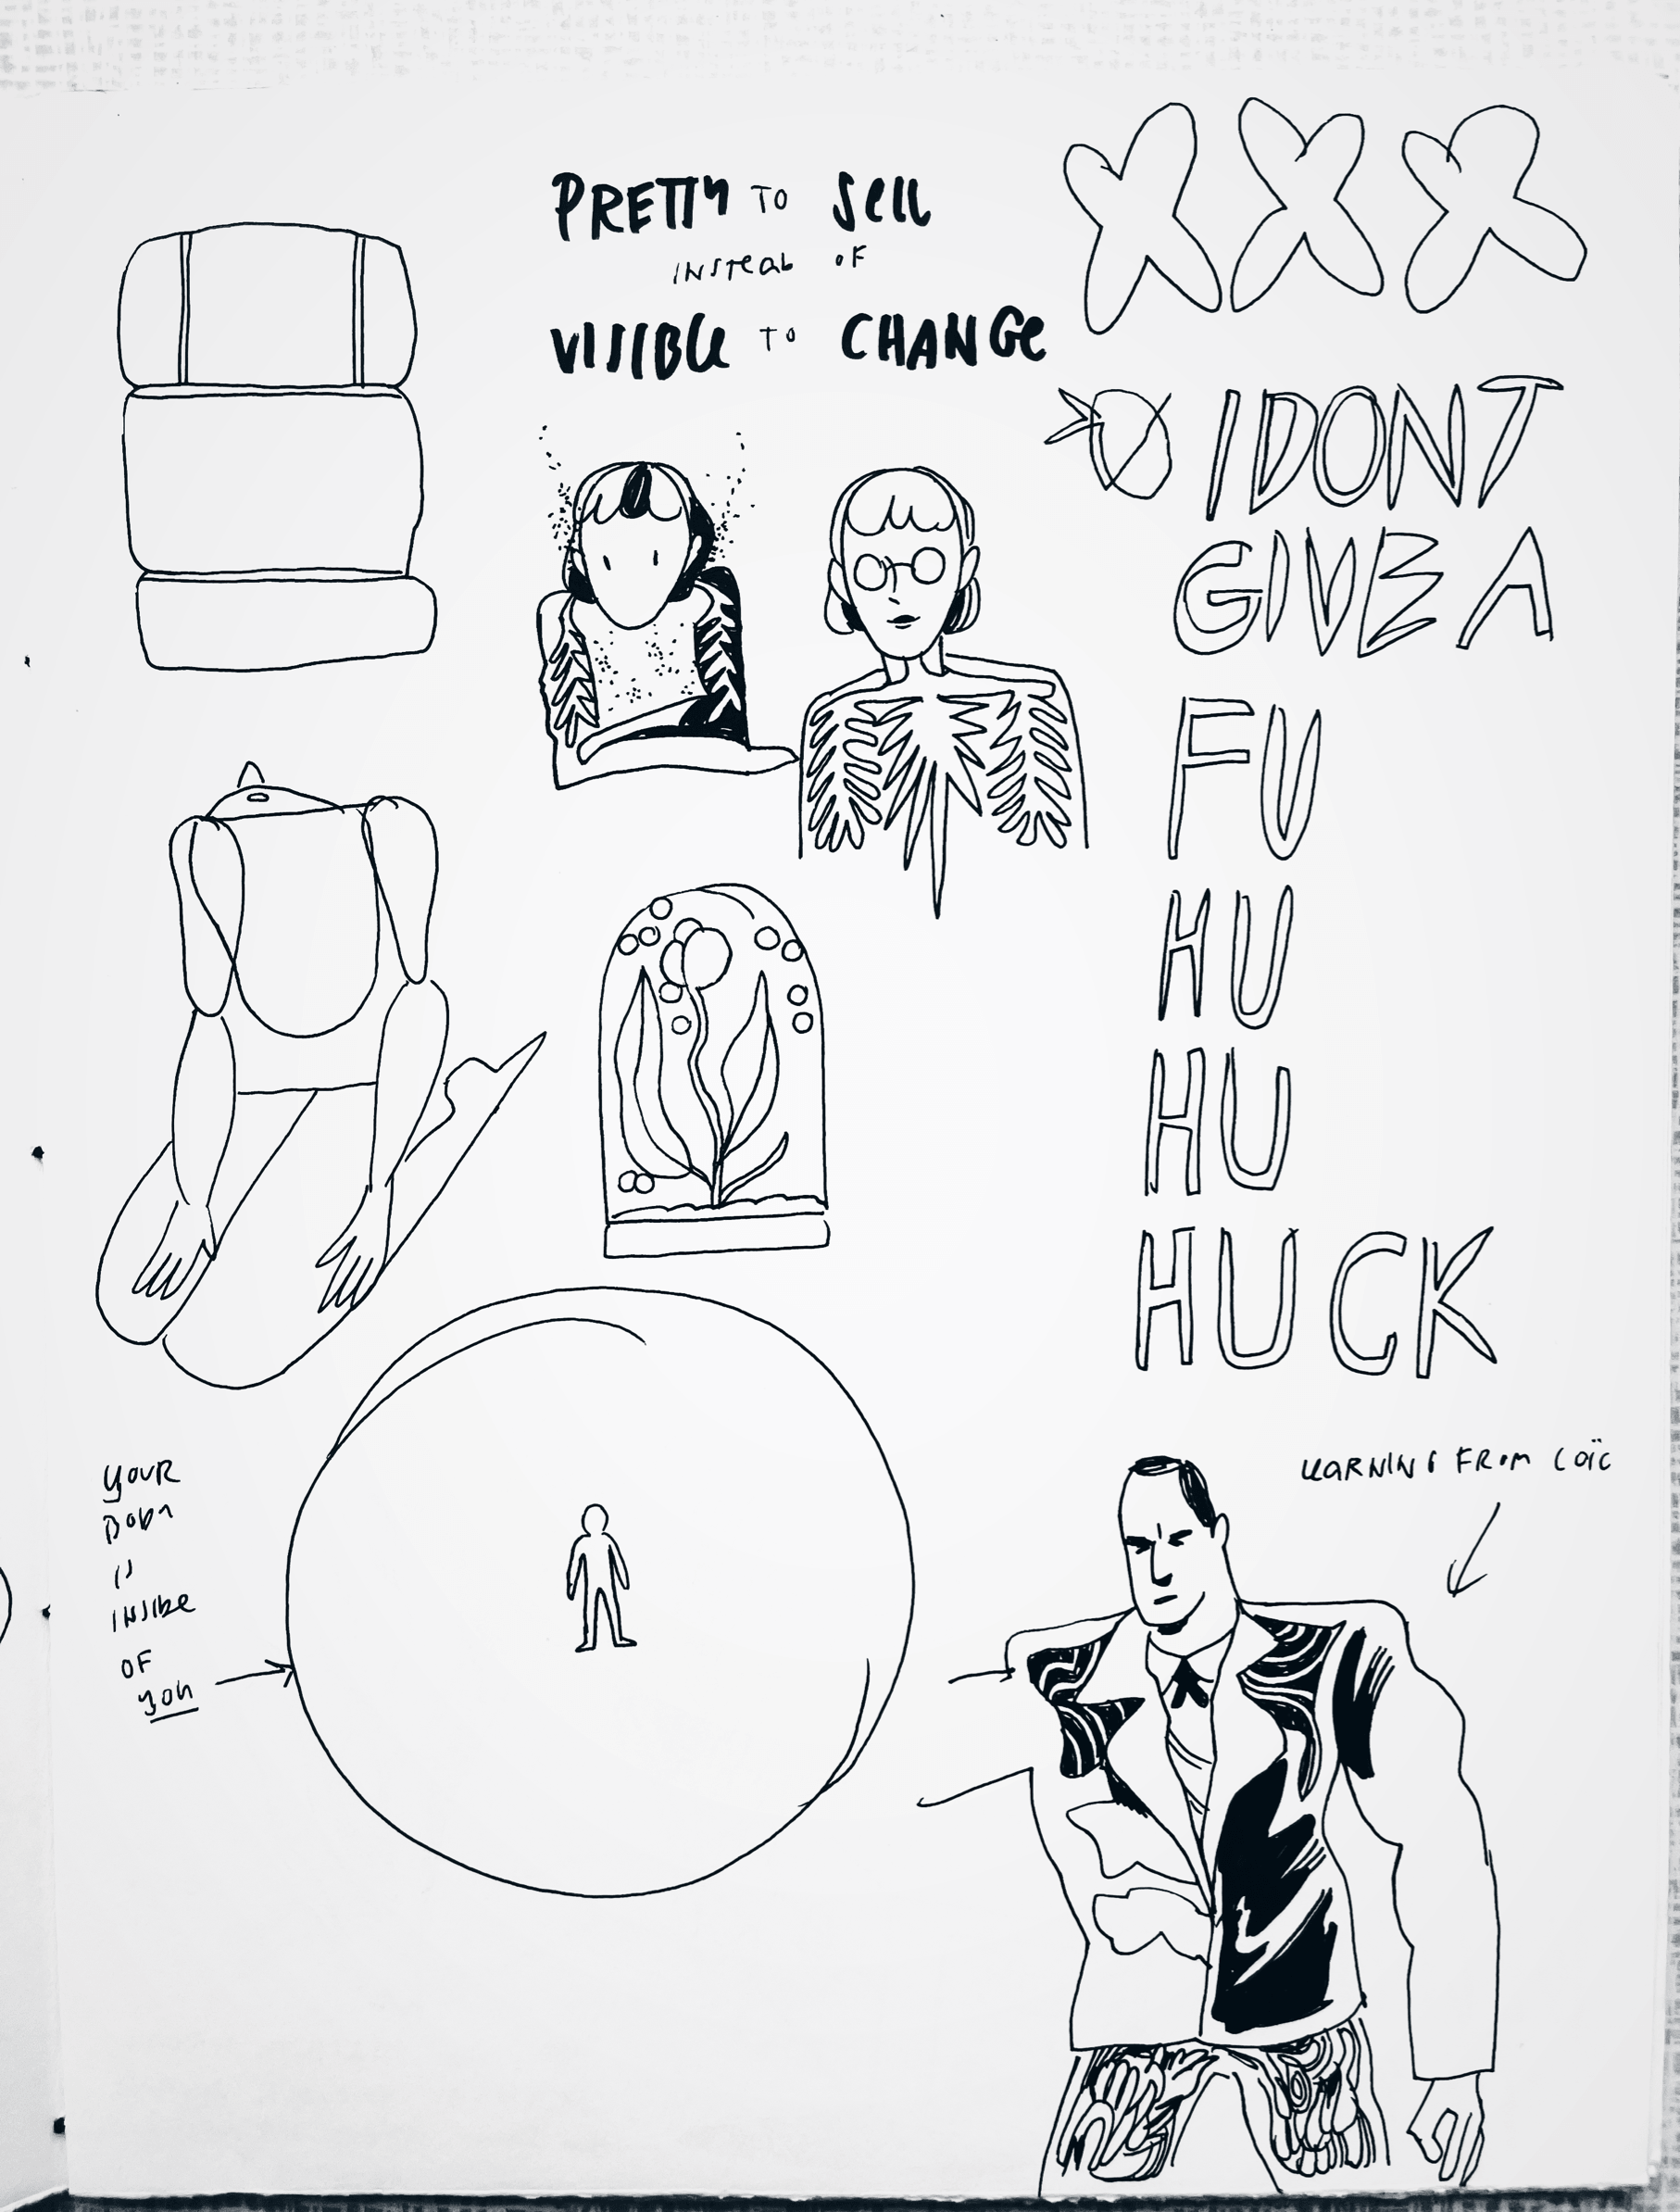 PRETTY TO SELL
INSTEAD OF
VISIBLE TO CHANGE
XXX
I DONT
GIVE A
FU
HU
HU
HUCK
YOUR
BODY
IS
INSIDE
OF
you
LEARNING FROM LOÏC